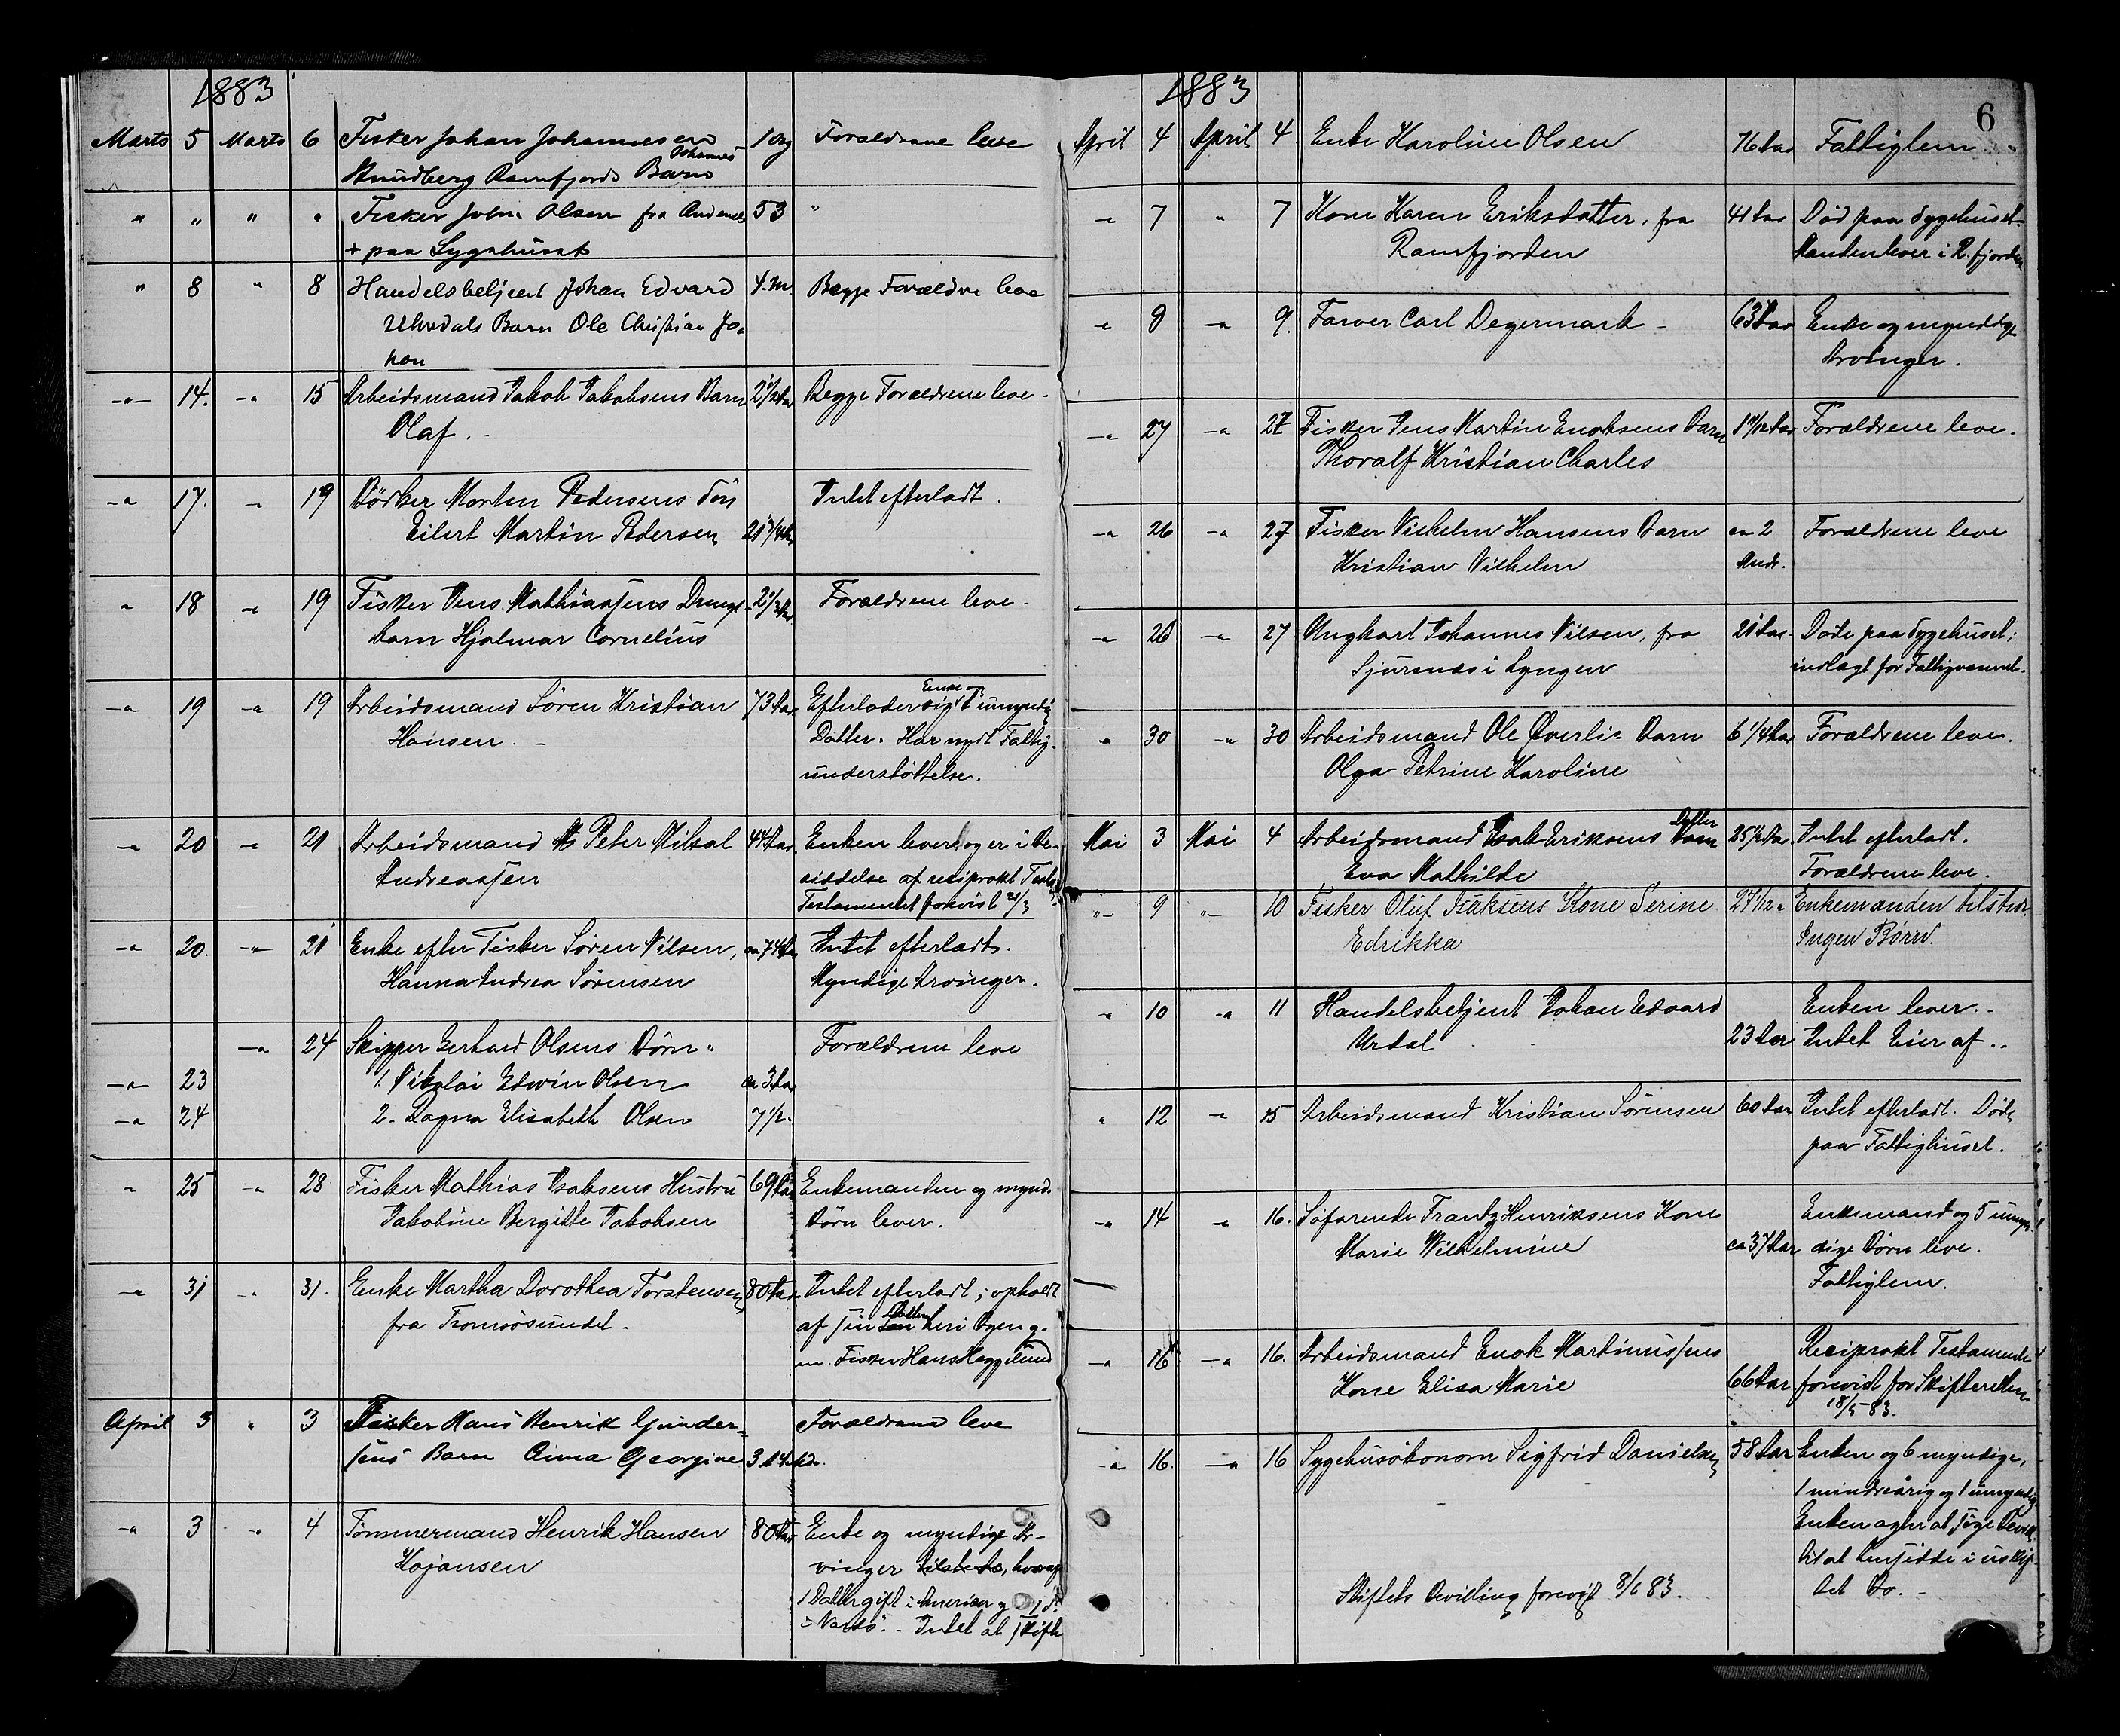 1883
Marts 5 Marts 6 Fisker Johan Johannesens 1 Dg Forældrene leve
Johannes
Strundberg Ramfjords Barn
" " " " Fisker John Olsen fra Andenes 53 "
+ paa Sygehuset
" 8 " 8 Handelsbetjent Johan Edvard 4. M. Begge Forældre leve
Urdals Barn Ole Christian Jo-
han
-"- 14. -" 15 Arbeidsmand Jakob Jakobsens Barn 2 1/2 Aar Begge Forældrene leve.
Olaf.
-" 17. -" 19 Bödker Morten Pedersens Sön Intet efterladt.
Eilert Martin Pedersen 21 3/4 Aar
" 18 -" 19 Fisker Jens Mathiassens Drenge- 2 1/2 Aar Forældrene leve.
barn Hjalmar Cornelius
-" 19 -" 19 Arbeidsmand Sören Kristian 73 Aar Efterlader sig Enke og 1 umyndig
Hansen. Datter. Har nydt Fattig-
understöttelse.
-" 20 -" 21 Arbeidsmand Peter Mikal 44 Aar Enken lever og er i Be-
Andreassen siddelse af reciprokt
Testamentet forevist 21/3
-" 20. -" 21 Enke efter Fisker Sören Nilsen, ca 74 Aar Intet efterladt.
Hanna Andrea Sörensen Myndige Arvinger.
-" 24 Skipper Gerhard Olsens Börn Forældrene leve
-" 23 1. Nikolai Edwin Olsen ca 3 Aar
-" 24 2. Dagna Elisabeth Olsen 7 1/2
" 25 -" 28 Fisker Mathias Isaksens Hustru 69 Aar Enkemanden og mynd.
Jakobine Bergitte Jakobsen Börn lever.
-" 31 -" 31. Enke Martha Dorothea Torstensen 80 Aar Intet efterladt; opholdt
fra Tromsösundet. af sin Datter heri Byen g.
m. Fisker Hans Heggelund
April 3 " 3 Fisker Hans Henrik Gunder- Forældrene leve
sens Barn Anna Georgine 3
-" 3 -" 4 Tömmermand Henrik Hansen 80 Aar Enke og myndige Ar-
Kojansen vinger tilstede, hvoraf
1 Datter gift i Amerika og 1 d.
i Vadsö. - Intet at skifte
1883
6
April 4 April 4 Enke Karoline Olsen 76 Aar Fattiglem
-" 7 " 7 Kone Karen Eriksdatter, fra 41 Aar Död paa Sygehuset.
Ramfjorden Manden lever i R.fjorden
-" 8 -" 9. Farver Carl Degermark 63 Aar Enke og myndige
Arvinger.
-" 27 -" 27 Fisker Jens Martin Enoksens Barn Forældrene leve.
Thoralf Kristian Charles
-" 26 -" 27 Fisker Vilhelm Hansens Barn ca 2 Forældrene leve
Kristian Vilhelm Mndr.
-" 26 -" 27 Ungkarl Johannes Nilsen, fra 21 Aar Döde paa Sygehuset;
Sjursnæs i Lyngen indlagt for Fattigvæsenet.
" 30 -" 30 Arbeidsmand Ole Överlis Barn 6 1/4 Aar Forældrene leve.
Olga Petrine Karoline
Mai 3 Mai 4 Arbeidsmand Isak Eriksens Datter 25 1/2 Aar Intet efterladt.
Eva Mathilde Forældrene leve.
"- 9 "- 10 Fisker Oluf Isaksens Kone Serine 27 1/2 " Enkemanden tilstede
Edrikka Ingen Börn.
-" 10 -" 11 Handelsbetjent Johan Edvard Enken lever.
Urdal 23 Aar Intet Eier af.
" 12 -" 15 Arbeidsmand Kristian Sörensen 60 Aar Intet efterladt. Döde
paa Fattighuset.
-" 14 -" 16. Söfarende Frantz Henriksens Kone Enkemand og 5 umyn-
Marie Wilhelmine ca 37 Aar dige Börn leve.
Fattiglem.
-" 16 -" 16. Arbeidsmand Enok Martinussens Reciprokt Testamente
Kone Elisa Marie 66 Aar forevist for Skifteretten
18/5 83.
-" 16. -" 16 Sygehusökonom Sigfrid Danielsen 58 Aar Enken og 6 myndige,
1 mindreårig og 1 umyndig.
Enken agter at söge Bevill.
til at hensidde i uskif-
Skiftets Bevilling forevist 8/6 83. tet Bo.